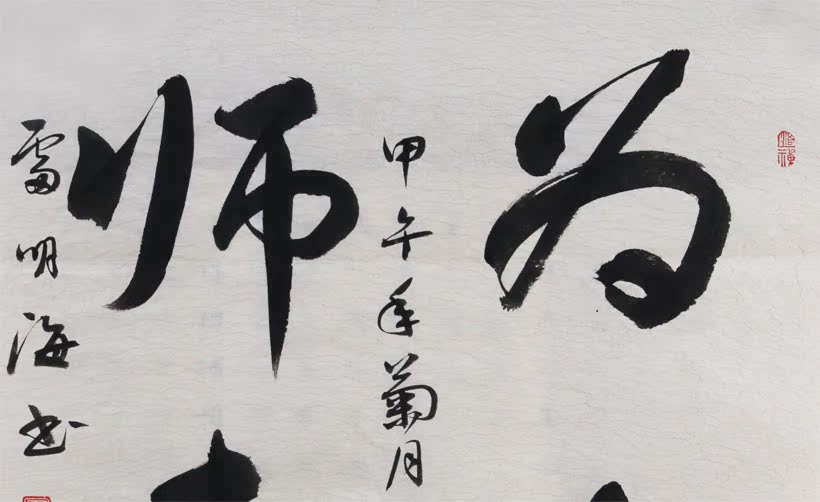 为
甲午年菊月
师
雷明海书